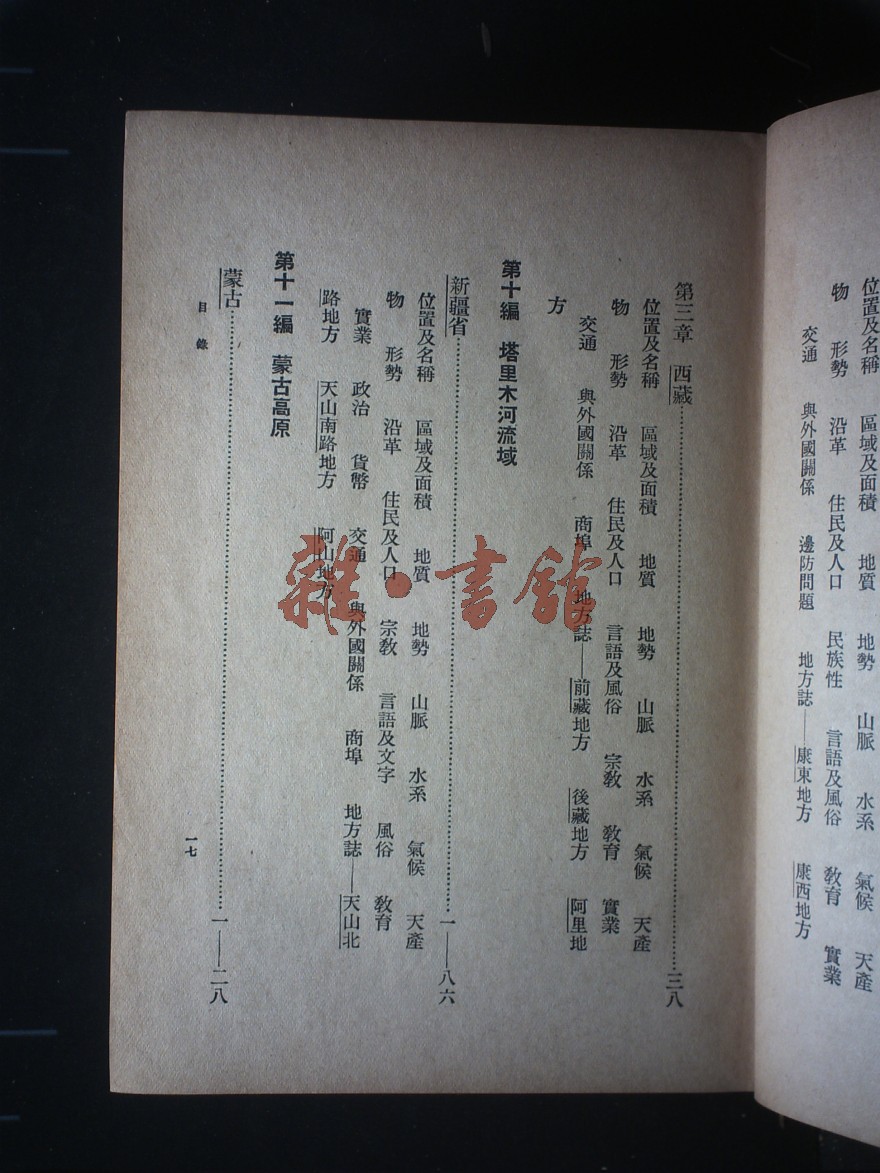 位置及名稱　區域及面積　地質　地勢　山脈　水系　氣候　天產
物　形勢　沿革　住民及人口　民族性　言語及風俗　教育　實業
交通　與外國關係　邊防問題　地方誌——康東地方　康西地方
第三章　西藏……三八
位置及名稱　區域及面積　地質　地勢　山脈　水系　氣候　天產
物　形勢　沿革　住民及人口　言語及風俗　宗教　教育　實業
交通　與外國關係　商埠　地方誌——前藏地方　後藏地方　阿里地
方
第十編　塔里木河流域
新疆省……一——八六
位置及名稱　區域及面積　地質　地勢　山脈　水系　氣候　天產
物　形勢　沿革　住民及人口　宗教　言語及文字　風俗　教育
實業　政治　貨幣　交通　與外國關係　商埠　地方誌——天山北
路地方　天山南路地方　阿山地方
第十一編　蒙古高原
蒙古……一——二八
目錄
一七
雜·書館